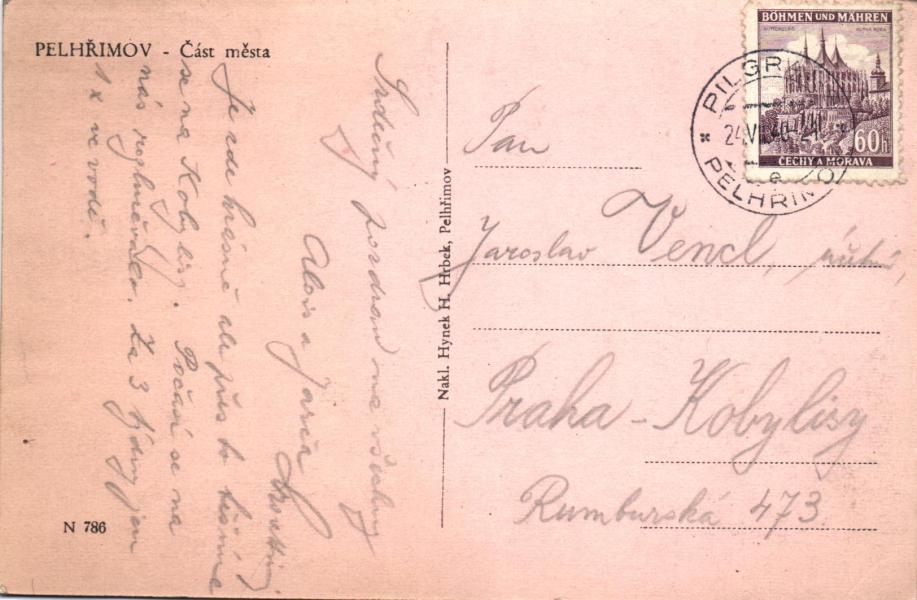 PELHŘIMOV - Část města
Srdečný pozdrav na všechny
Alois a Jarča
Je zde krásně ale přes to těšíme
se na Kobylisy. Počasí se na
nás rozhněvalo. Za 3 týdny jsem
1 x ve vodě.
N 786
Nakl. Hynek H. Hrbek, Pelhřimov
BÖHMEN UND MÄHREN
60h
ČECHY A MORAVA
PILGR
24.VII.40
e
PELHŘIMOV
Pan
Jaroslav Vencl,
Praha - Kobylisy
Rumburská 473